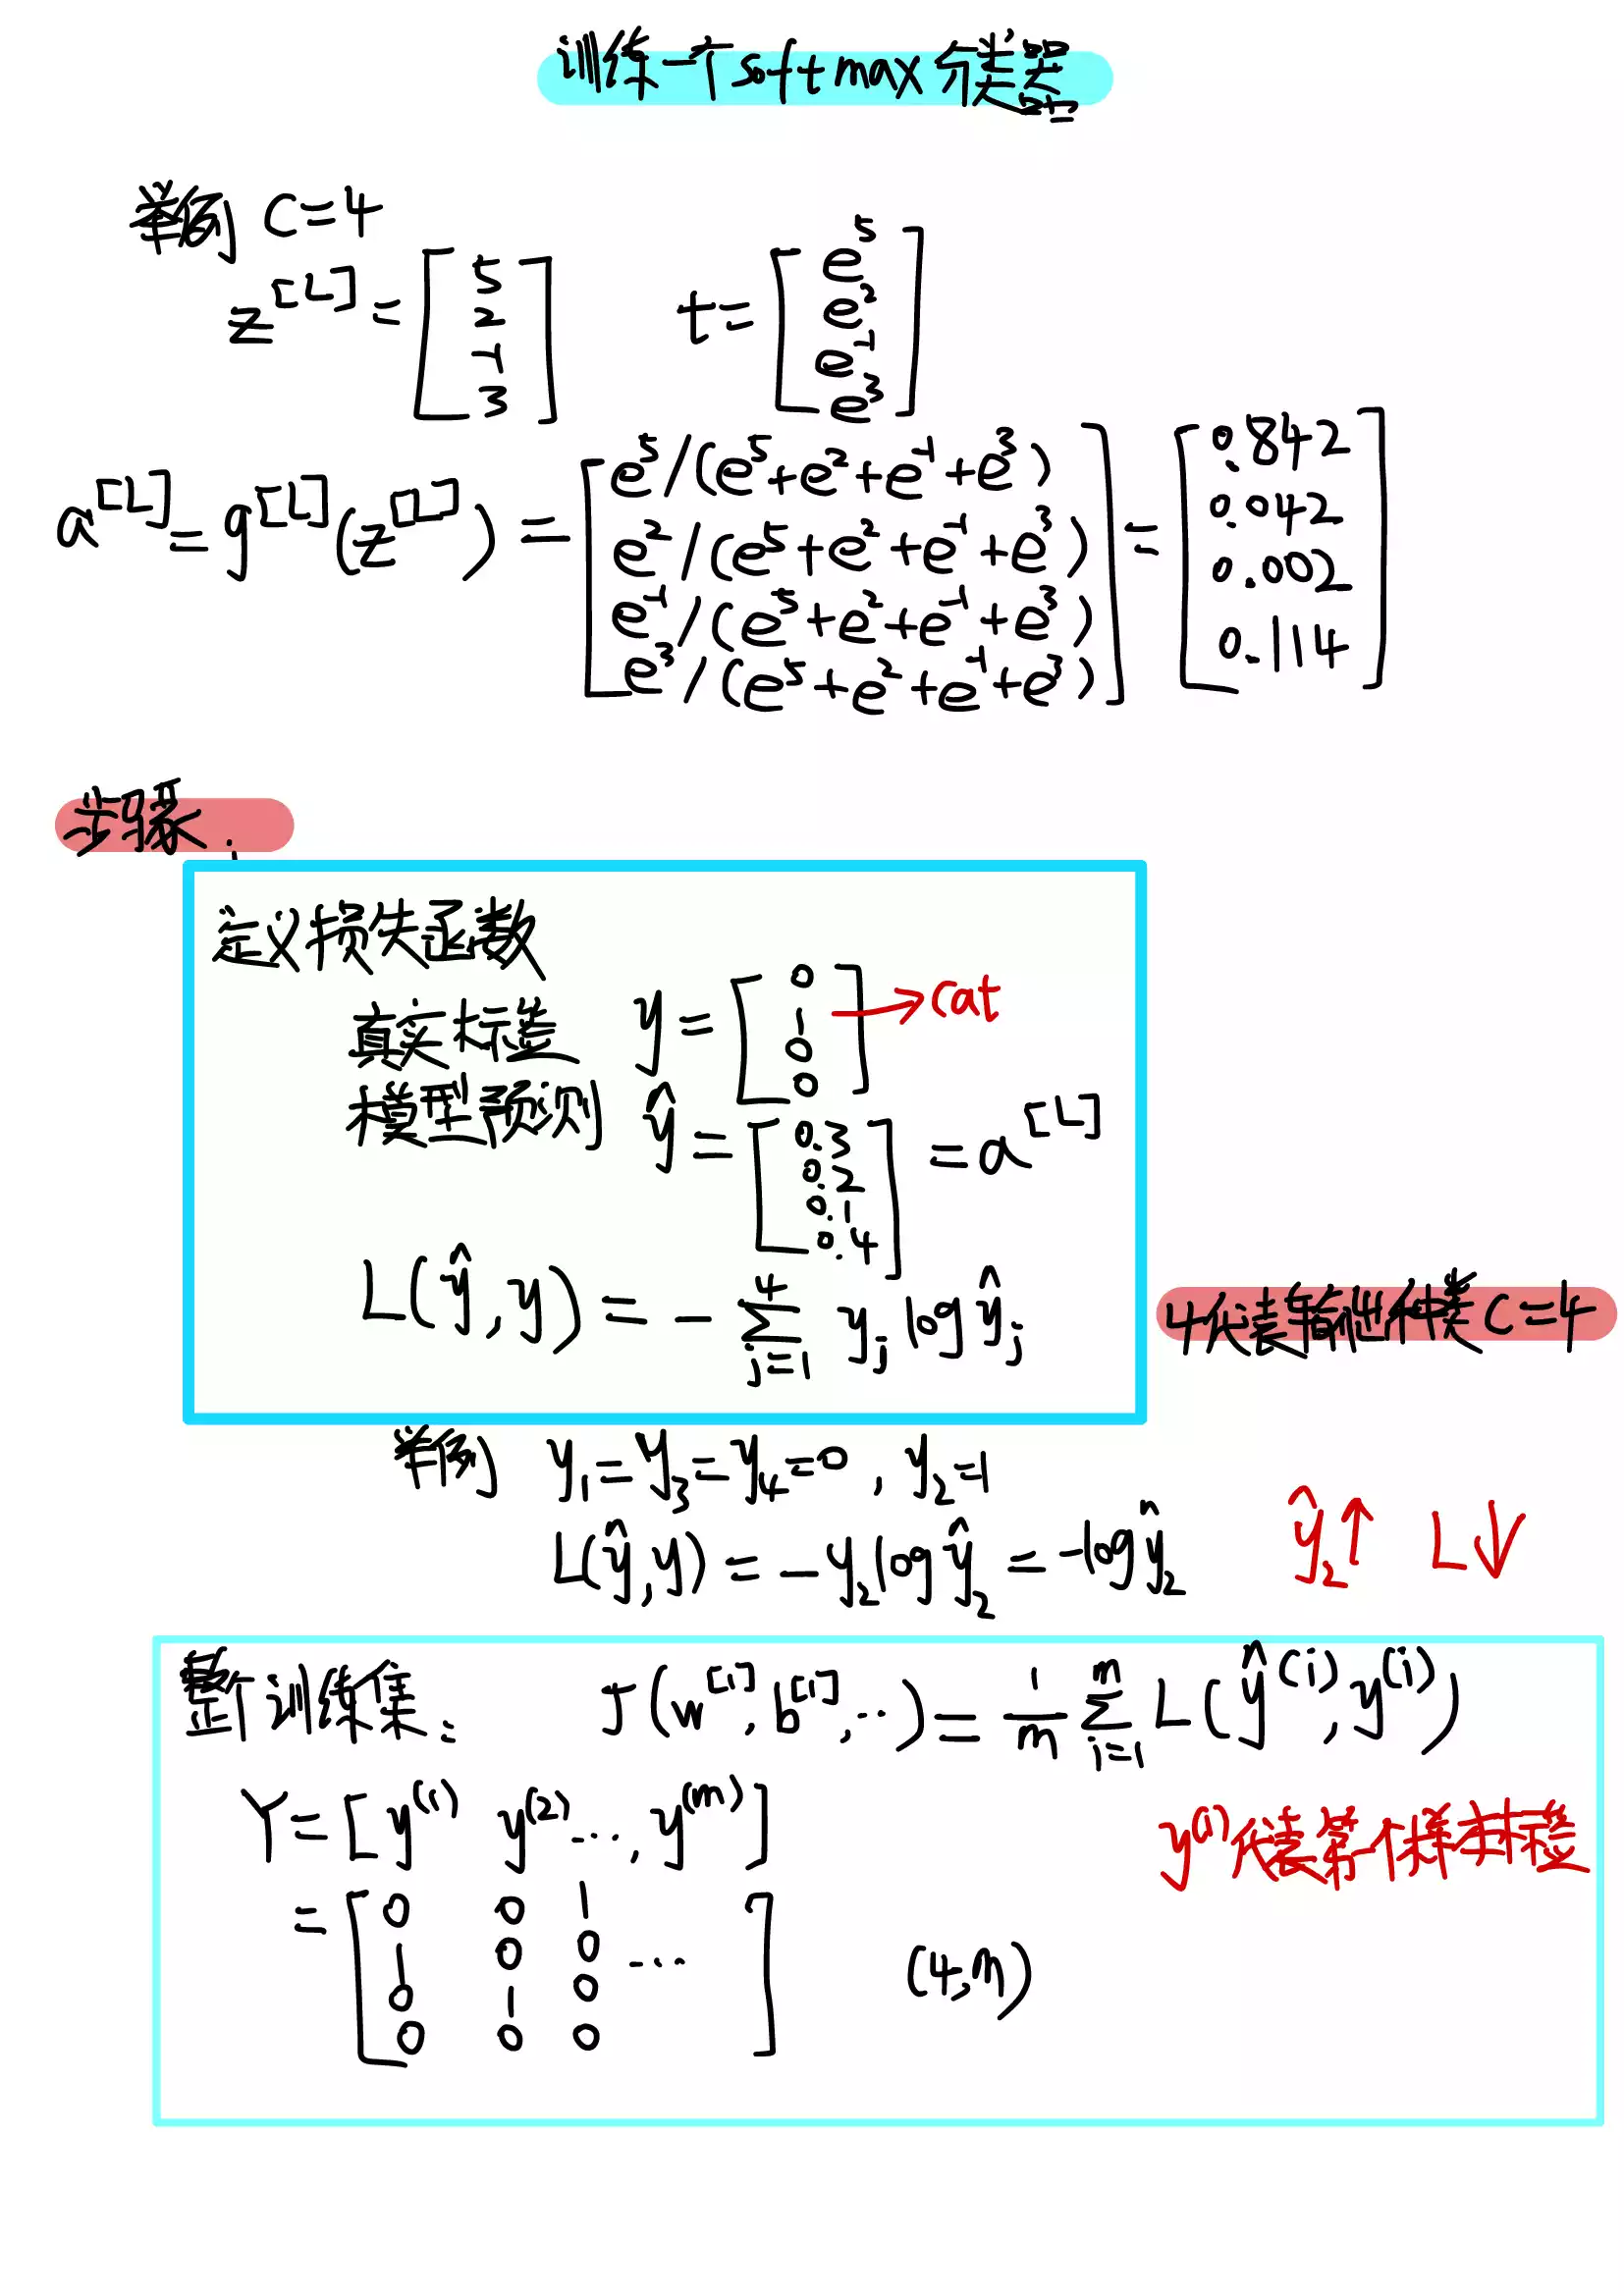 训练一个softmax分类器
举例 C=4
z^[L] = [5 2 -1 3] t = [e^5 e^2 e^-1 e^3]
a^[L] = g^[L](z^[L]) = [e^5/(e^5+e^2+e^-1+e^3) e^2/(e^5+e^2+e^-1+e^3) e^-1/(e^5+e^2+e^-1+e^3) e^3/(e^5+e^2+e^-1+e^3)] = [0.842 0.042 0.002 0.114]
步骤:
定义损失函数
真实标签 y = [0 1 0 0] → cat
模型预测 ŷ = [0.3 0.2 0.1 0.4] = a^[L]
L(ŷ, y) = - ∑_{j=1}^{4} y_j log ŷ_j
4代表输出种类 C=4
举例 y_1=y_3=y_4=0, y_2=1
L(ŷ, y) = -y_2 log ŷ_2 = -log ŷ_2 ŷ_2↑ L↓
整个训练集: J(w^[1], b^[1], ...) = 1/m ∑_{i=1}^{m} L(ŷ^(i), y^(i))
Y = [y^(1) y^(2) ..., y^(m)]
y^(1)代表第一个样本标签
= [0 0 1
1 0 0 ...
0 1 0
0 0 0] (4,m)